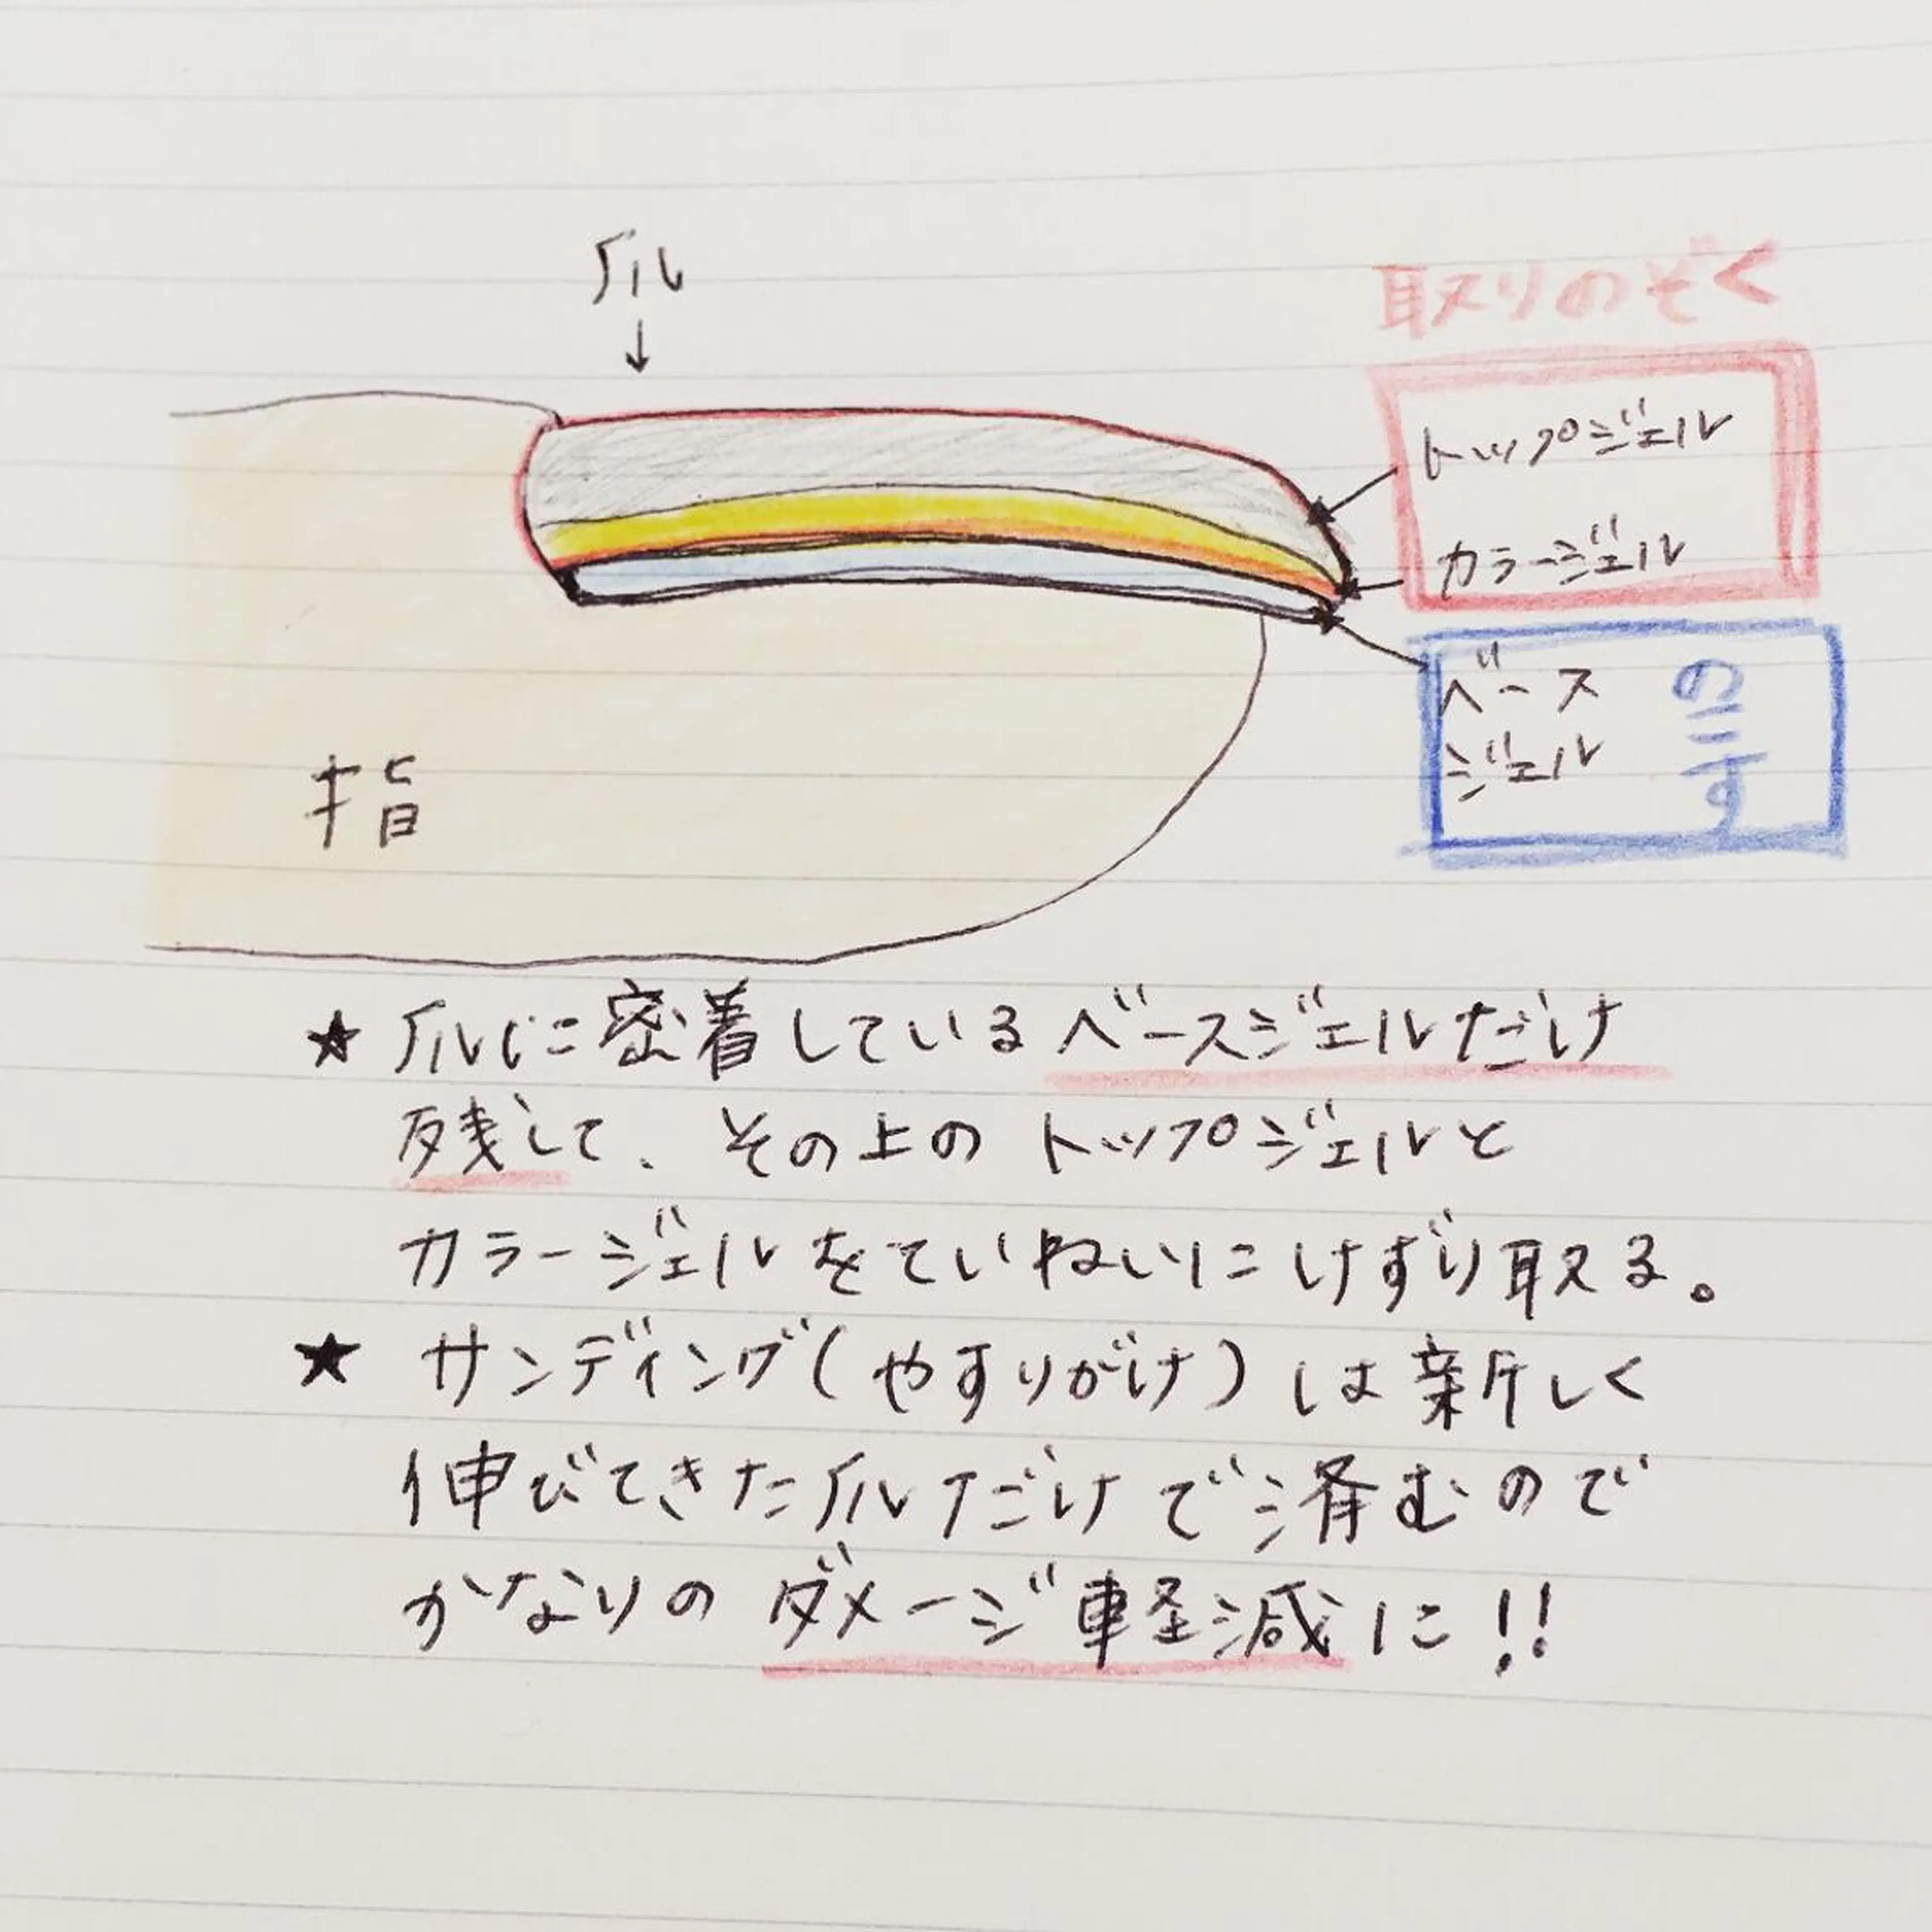 爪
取りのぞく
トップジェル
カラージェル
ベース
ジェル
のこす
指
★ 爪に密着しているベースジェルだけ
残して、その上のトップジェルと
カラージェルをていねいにけずり取る。
★ サンディング(やすりがけ)は新しく
伸びてきた爪だけで済むので
かなりのダメージ軽減に!!